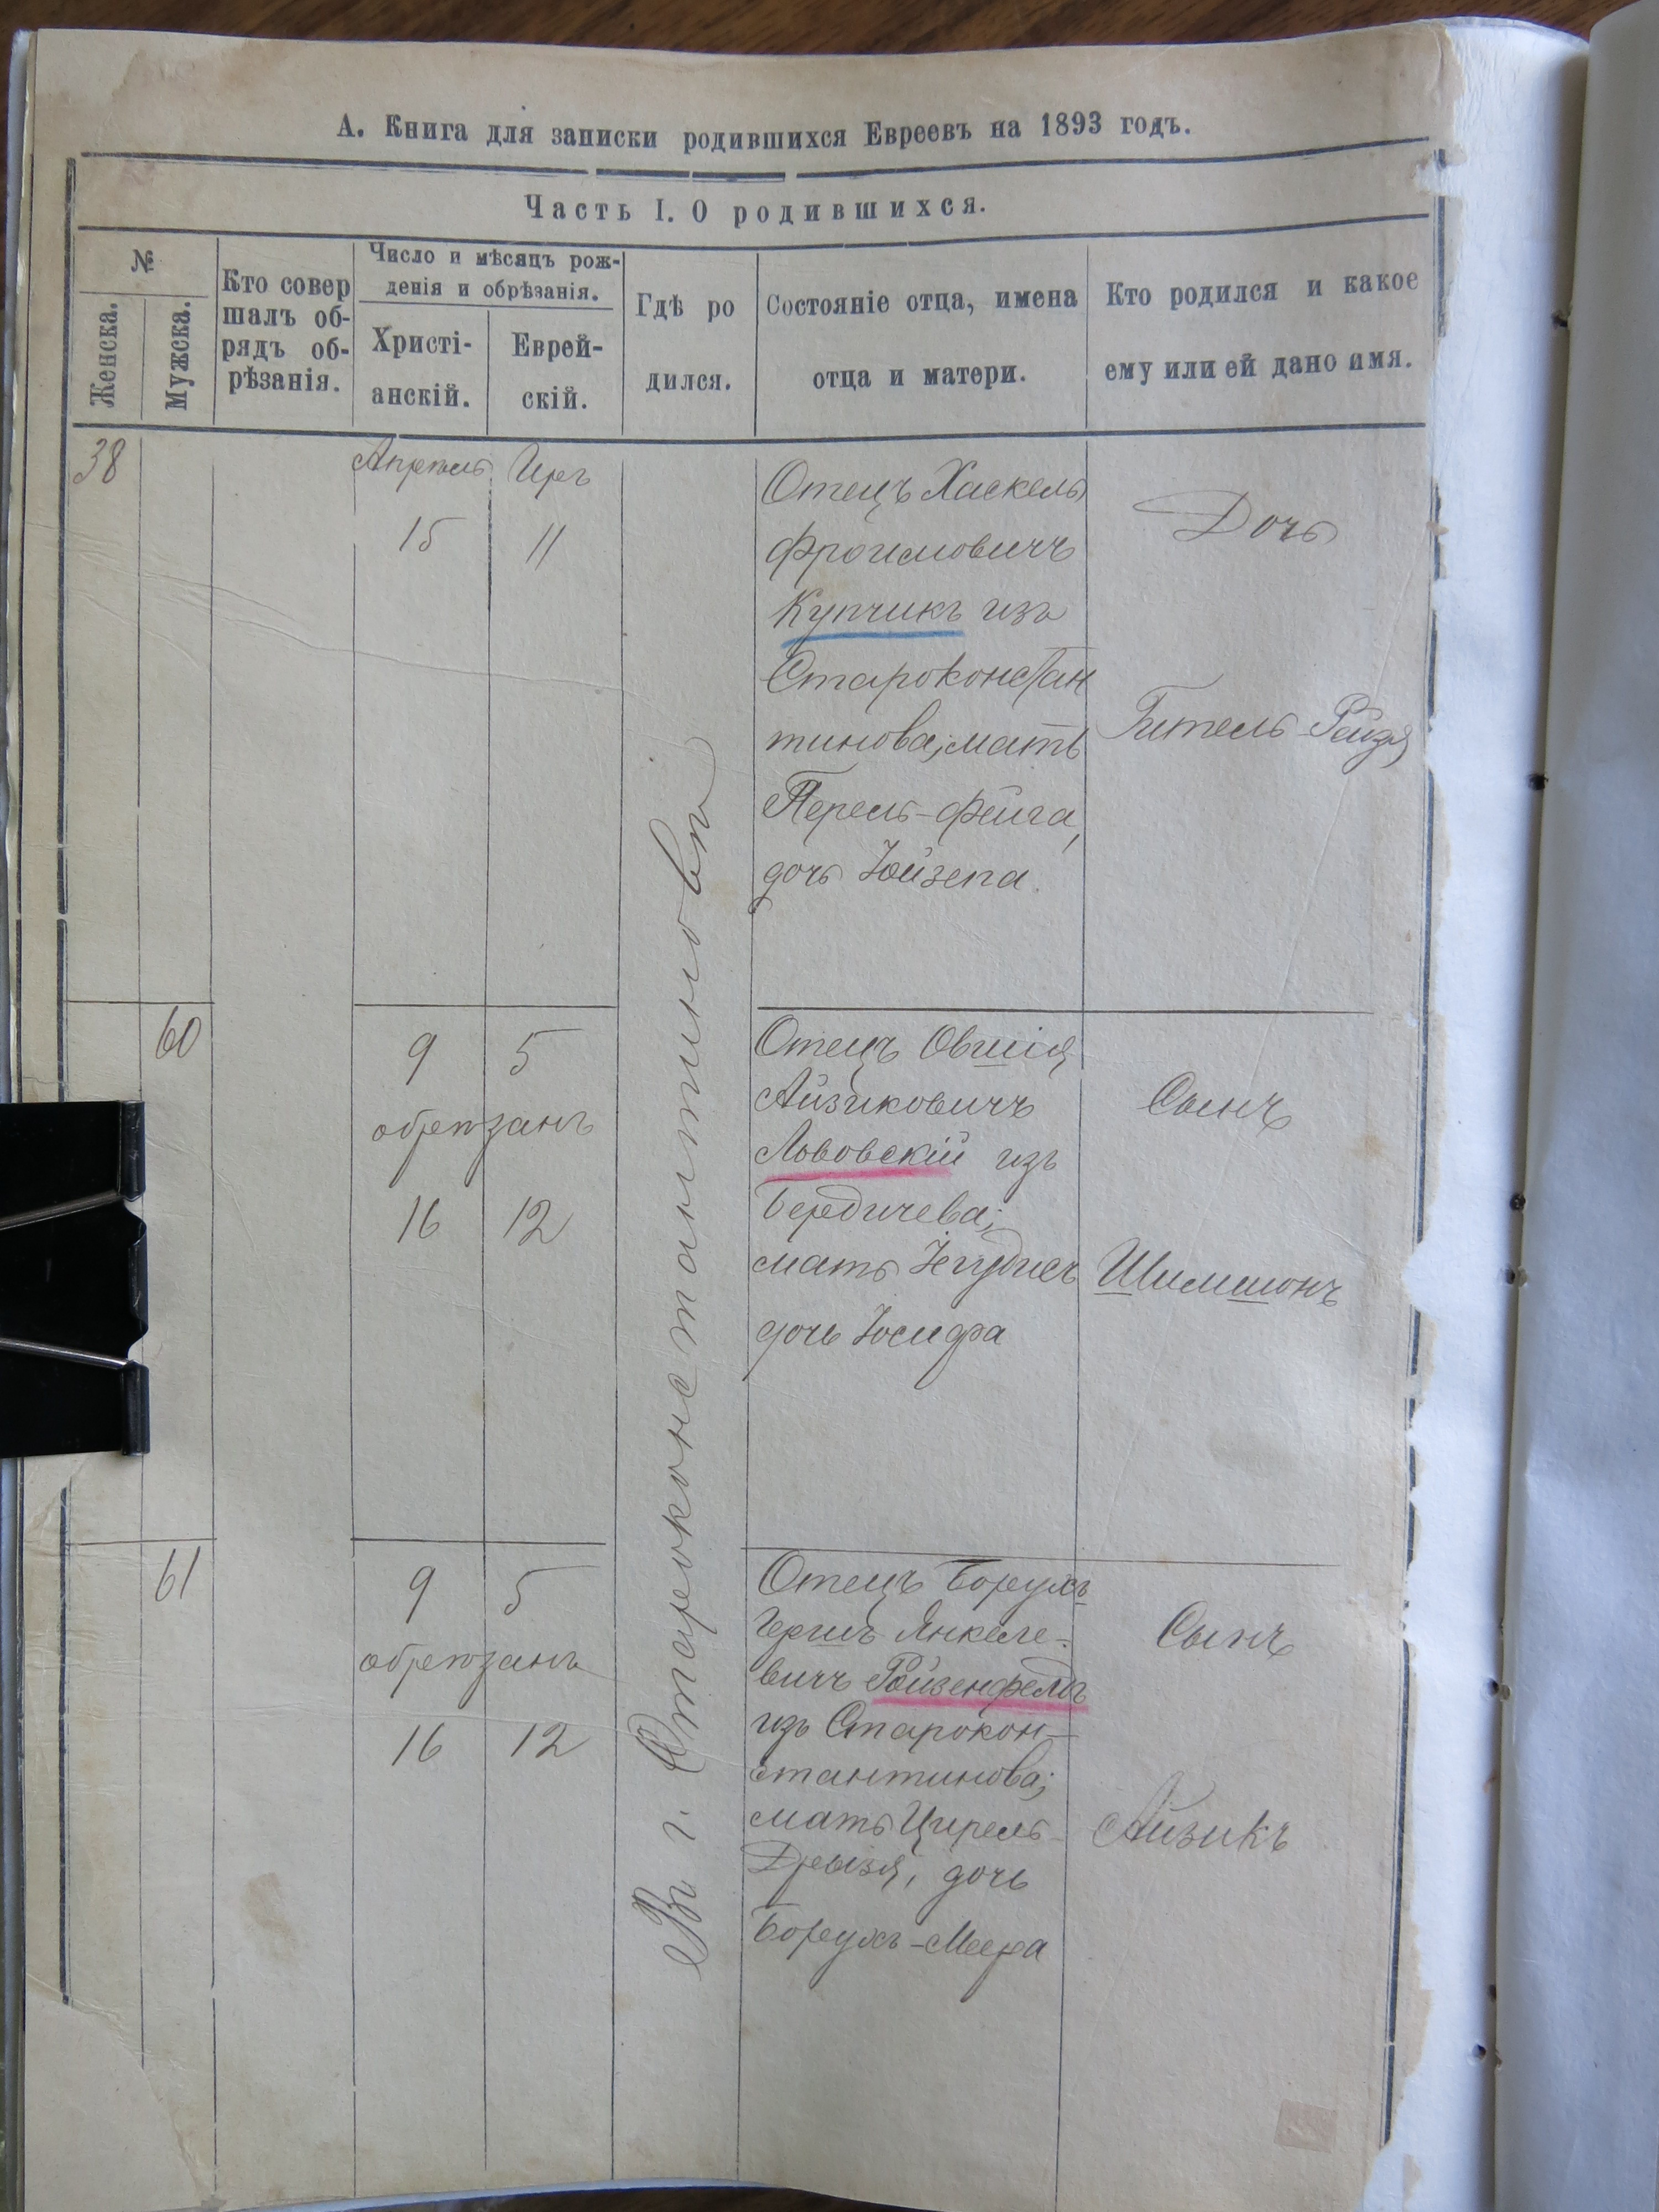 А. Книга для записки родившихся Евреевъ на 1893 годъ.
Часть I. О родившихся.
№
Женска.
Мужска.
Кто совер
шалъ об-
рядъ об-
рѣзанія.
Число и мѣсяцъ рож-
денія и обрѣзанія.
Христі-
анскій.
Еврей-
скій.
Гдѣ ро
дился.
Состояніе отца, имена
отца и матери.
Кто родился и какое
ему или ей дано имя.
38
Апрель
15
Iръ
11
Въ г. Староконстантиновѣ
Отецъ Хаскель
Фроимовичъ
Купчикъ изъ
Староконстан
тинова; мать
Перель-Фейга,
дочь Iойзепа.
Дочь
Гитель-Рейзя
60
9 5
обрѣзанъ
16 12
Отецъ Овшія
Айзиковичъ
Львовскій изъ
Бердичева;
мать
дочь Iосифа
Сынъ
Шимшонъ
61
9 5
обрѣзанъ
16 12
Отецъ Борухъ
Гершъ Янкеле-
вичъ Ройзенфельдъ
изъ Старокон-
стантинова;
мать Цирель-
Дрызя, дочь
Борухъ-Меера
Сынъ
Айзикъ